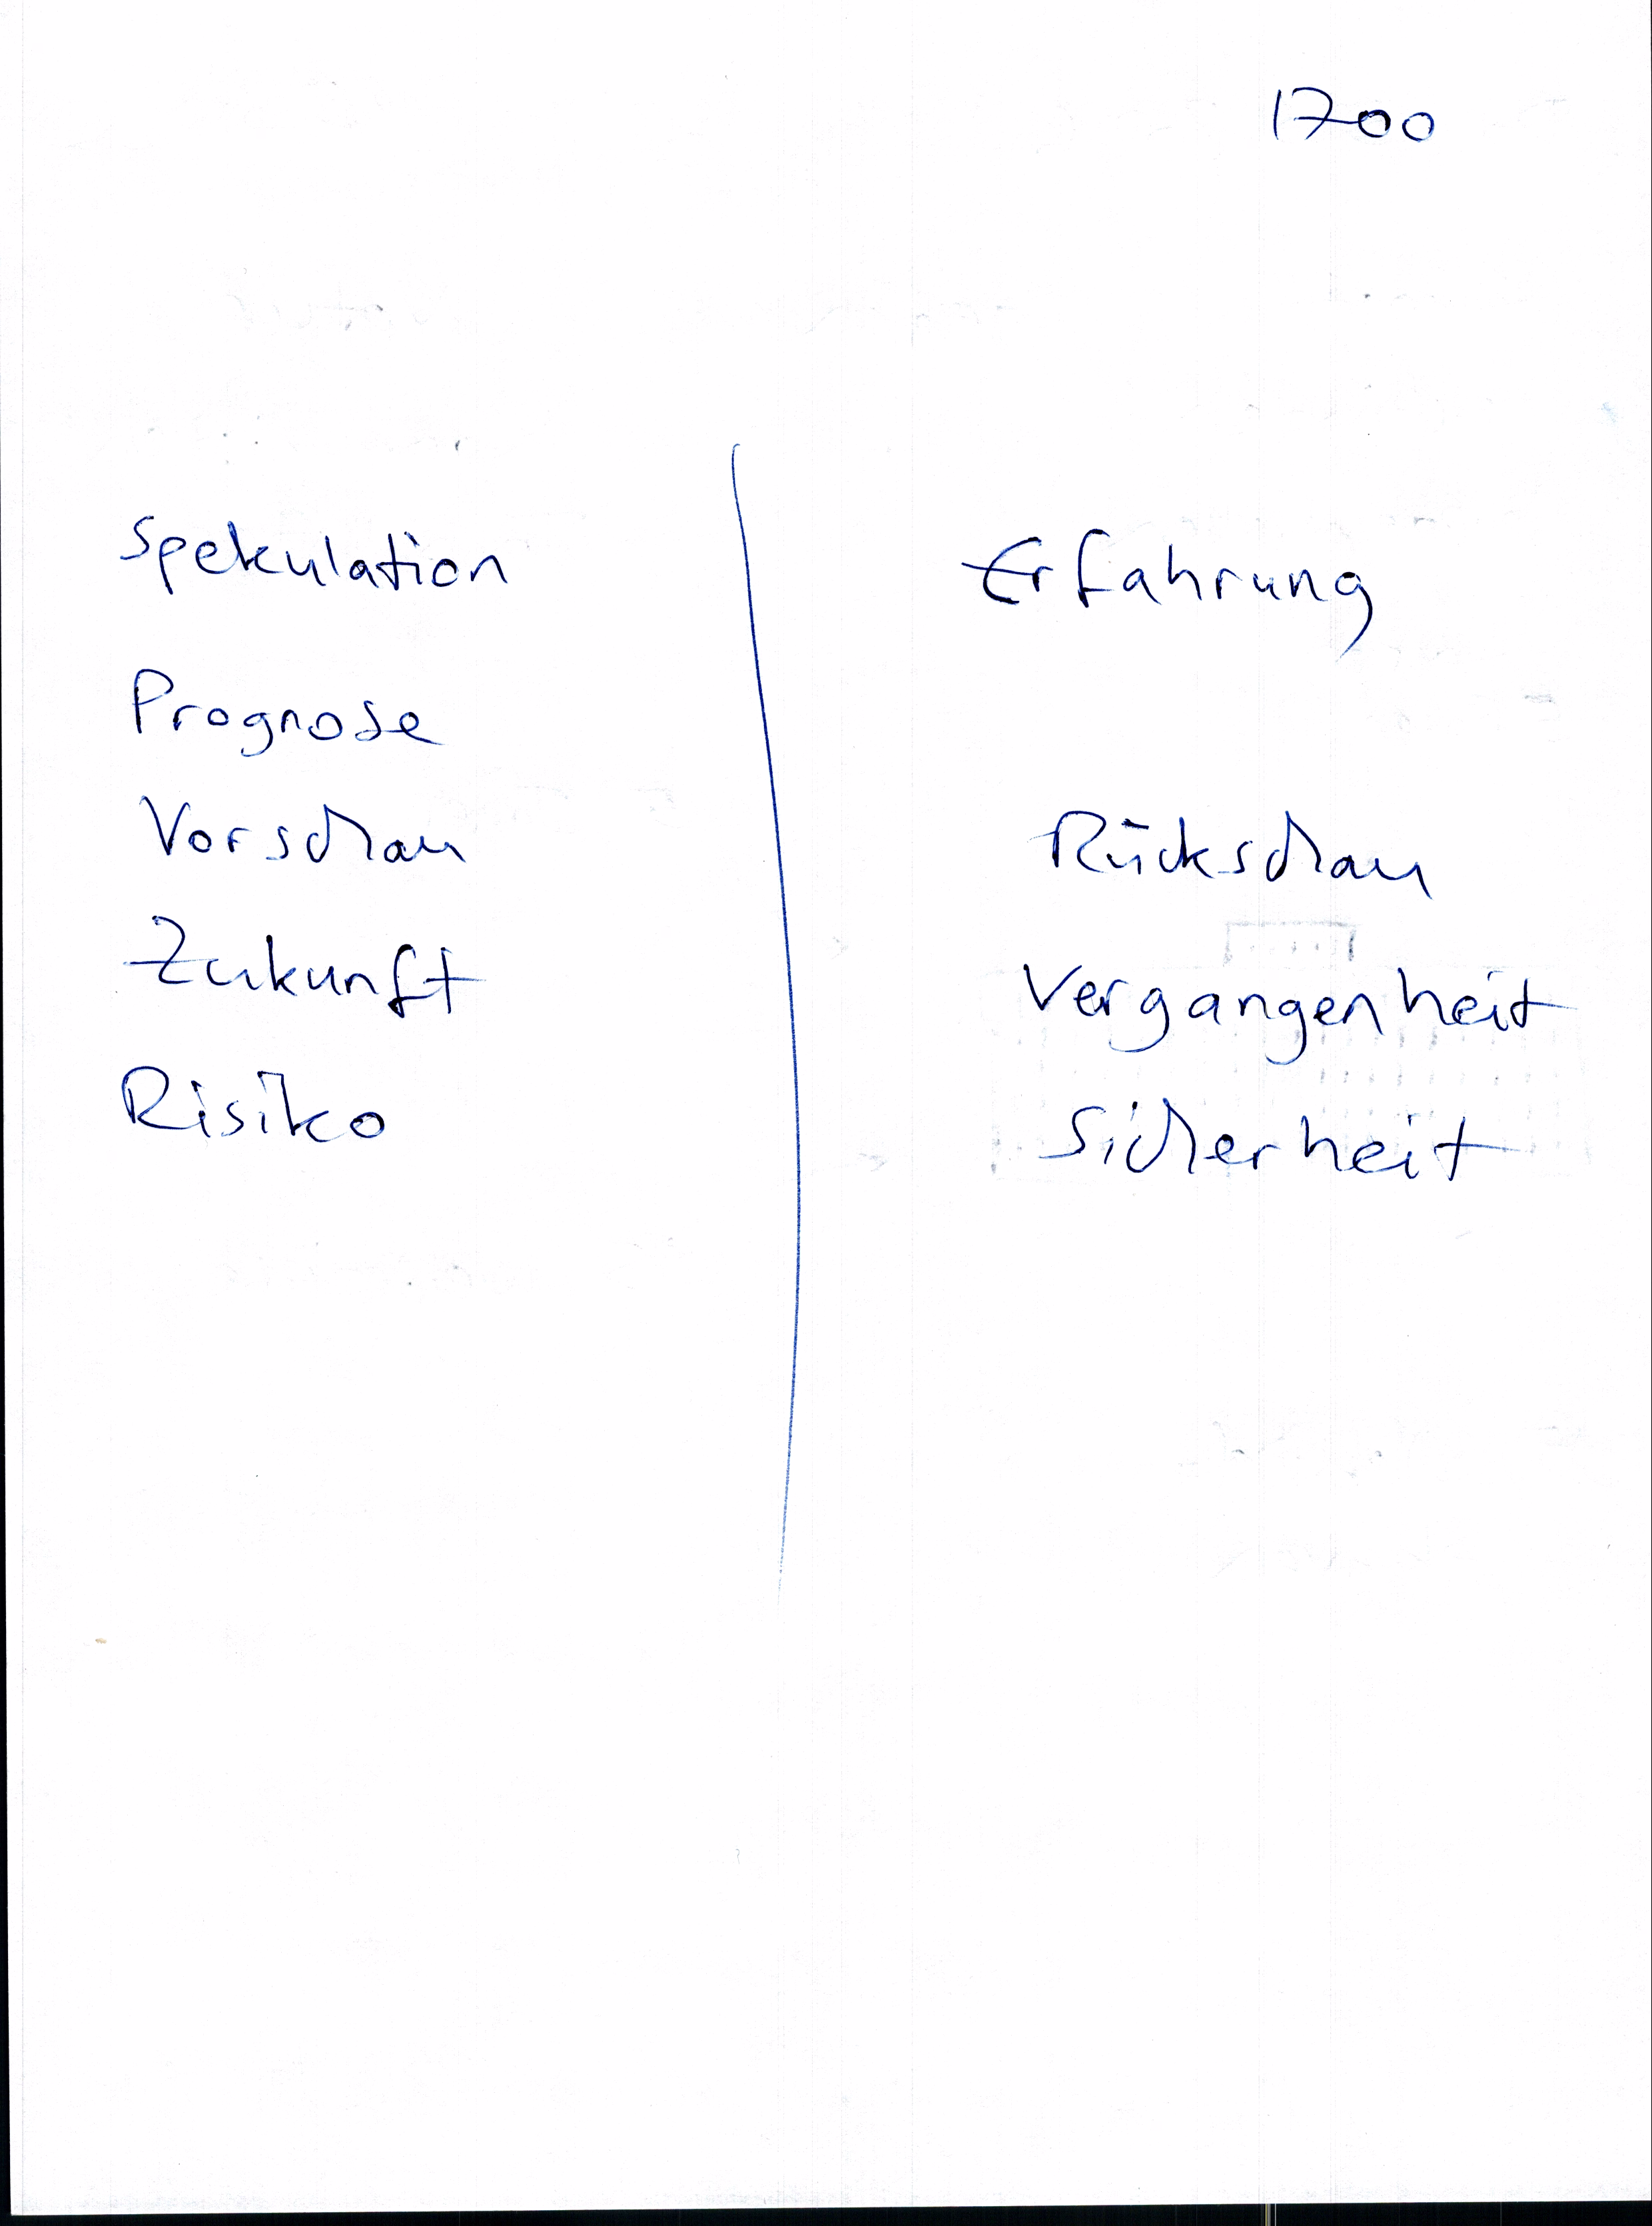 1700
Spekulation
Prognose
Vorschau
Zukunft
Risiko
Erfahrung
Rückschau
Vergangenheit
Sicherheit